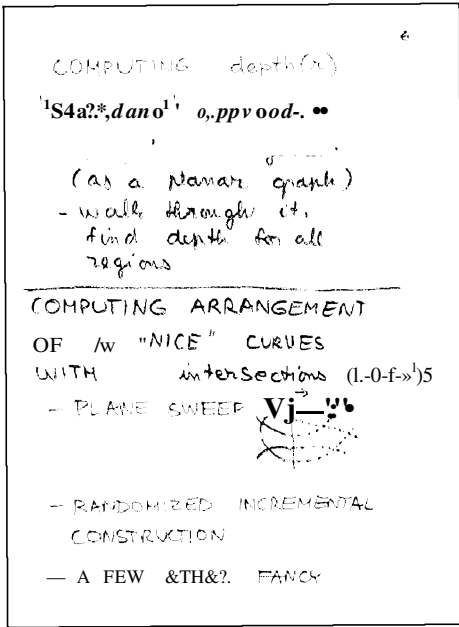 6
COMPUTING depth(r)
'¹S4a?.*,dano¹' o,.ppvood-. ••
(as a planar graph)
- walk through it,
find depth for all
regions
COMPUTING ARRANGEMENT
OF /w "NICE" CURVES
WITH intersections (l.-0-f-»¹)5
- PLANE SWEEP Vj—'.'•
- RANDOMIZED INCREMENTAL
CONSTRUCTION
— A FEW &TH&?. FANCY